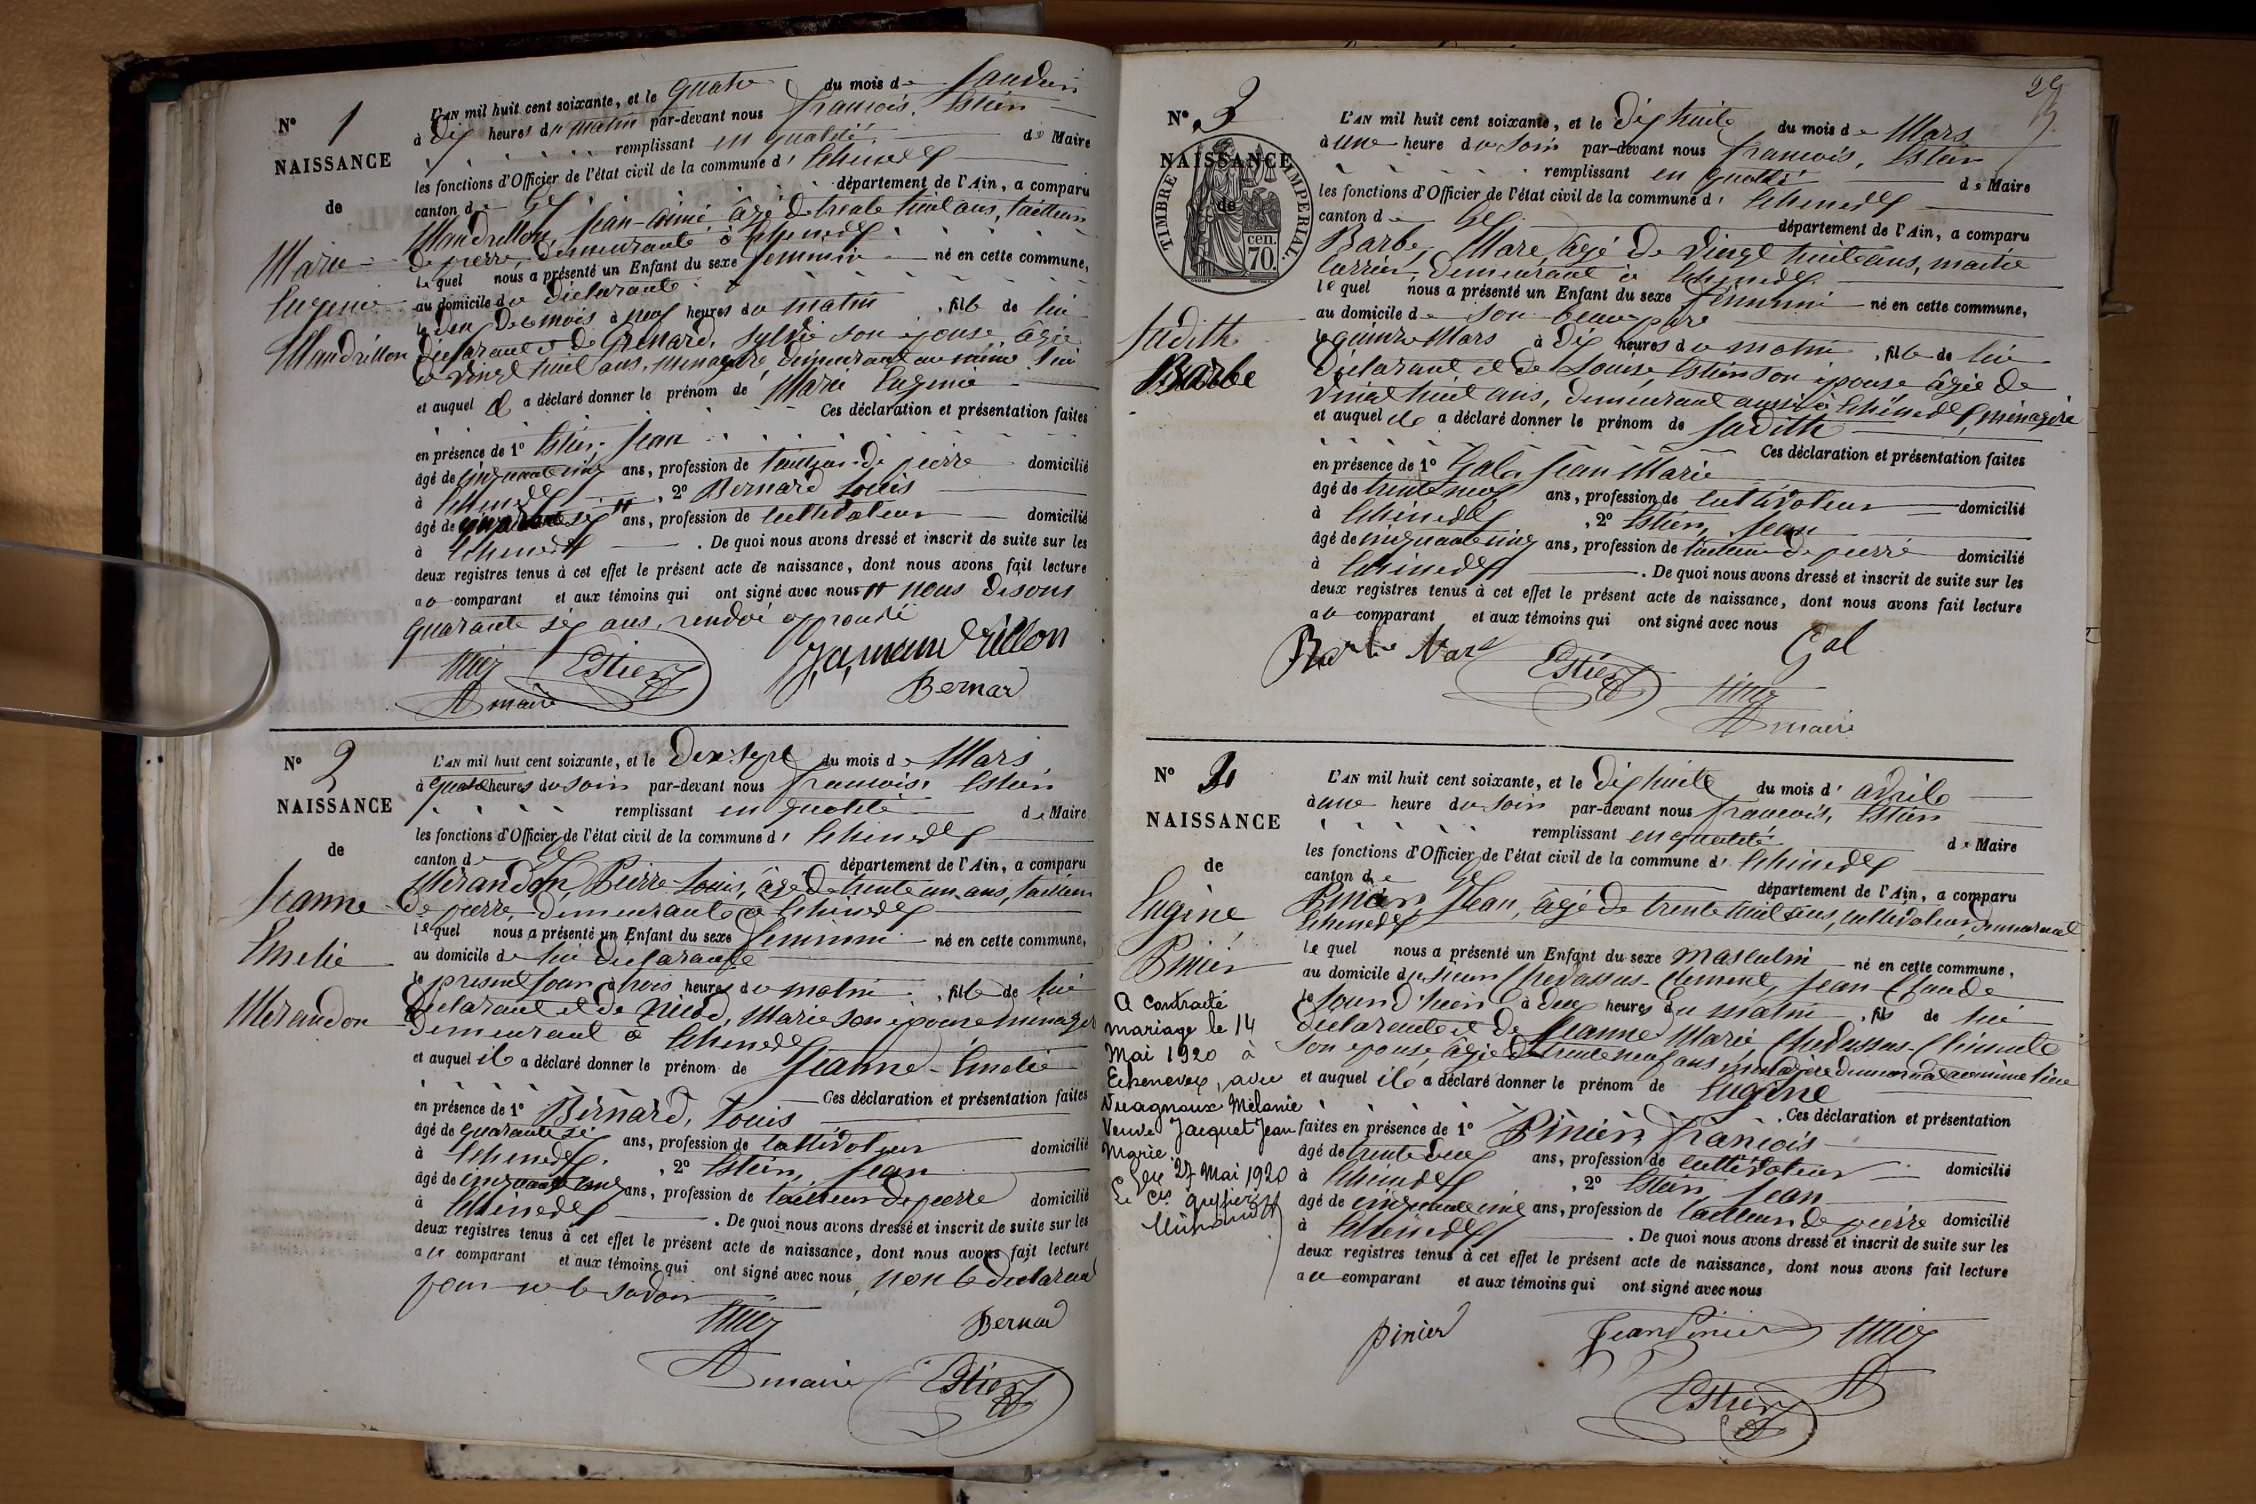 N° 1
NAISSANCE
de
Marie
Eugenie
Mandrillon
L'AN mil huit cent soixante, et le quatre du mois de Janvier
à dix heures du matin par-devant nous françois, Estier
remplissant en qualité de Maire
les fonctions d'Officier de l'état civil de la commune d' Echenevex
canton de Gex département de l'Ain, a comparu
Mandrillon, Jean-Aimé, âgé de trente huit ans, tailleur
de pierre, demeurant à Echenevex
lequel nous a présenté un Enfant du sexe féminin né en cette commune,
au domicile du déclarant
le deux de ce mois à neuf heures du matin, fille de lui
déclarant et de Grenard, Sylvie son épouse, âgée
de vingt huit ans, ménagère, demeurant au même lieu
et auquel il a déclaré donner le prénom de Marie Eugenie
Ces déclaration et présentation faites
en présence de 1° Estier, Jean
âgé de cinquante cinq ans, profession de tailleur de pierre domicilié
à Echenevex, 2° Bernard Louis
âgé de ans, profession de cultivateur domicilié
à Echenevex. De quoi nous avons dressé et inscrit de suite sur les
deux registres tenus à cet effet le présent acte de naissance, dont nous avons fait lecture
au comparant et aux témoins qui ont signé avec nous nous disons
quarante six ans, renvoi approuvé
Estier
Jamandrillon
maire
Bernard
N° 2
NAISSANCE
de
Jeanne
Emelie
Merandon
L'AN mil huit cent soixante, et le dix sept du mois de Mars
à quatre heures du soir par-devant nous françois, Estier
remplissant en qualité de Maire
les fonctions d'Officier de l'état civil de la commune d' Echenevex
canton de Gex département de l'Ain, a comparu
Mérandon, Pierre-Louis, âgé de trente un ans, tailleur
de pierre, demeurant à Echenevex
lequel nous a présenté un Enfant du sexe féminin né en cette commune,
au domicile de lui déclarant
le présent jour à trois heures du matin, fille de lui
déclarant et de Nicod, Marie son épouse ménagère
demeurant à Echenevex
et auquel il a déclaré donner le prénom de Jeanne-Emelie
Ces déclaration et présentation faites
en présence de 1° Bernard, Louis
âgé de quarante six ans, profession de cultivateur domicilié
à Echenevex, 2° Estier, Jean
âgé de cinquante cinq ans, profession de tailleur de pierre domicilié
à Echenevex. De quoi nous avons dressé et inscrit de suite sur les
deux registres tenus à cet effet le présent acte de naissance, dont nous avons fait lecture
au comparant et aux témoins qui ont signé avec nous, non le déclarant
pour ne le savoir
Bernard
maire
Estier
29
N° 3
NAISSANCE
de
TIMBRE IMPERIAL.
cen.
70.
Judith
Barbe
L'AN mil huit cent soixante, et le dix huite du mois de Mars
à une heure du soir par-devant nous francois, Estier
remplissant en qualité de Maire
les fonctions d'Officier de l'état civil de la commune d' Echenevex
canton de Gex département de l'Ain, a comparu
Barbe, Marc, âgé de vingt huit ans, maître
carrier, demeurant à Echenevex
lequel nous a présenté un Enfant du sexe féminin né en cette commune,
au domicile de son beau père
le quinze Mars à dix heures du matin, fille de lui
déclarant et de Louise Estier son épouse âgée de
vingt huit ans, demeurant aussi à Echenevex, ménagère
et auquel il a déclaré donner le prénom de Judith
Ces déclaration et présentation faites
en présence de 1° Gal Jean Marie
âgé de trente neuf ans, profession de cultivateur domicilié
à Echenevex, 2° Estier, Jean
âgé de cinquante cinq ans, profession de tailleur de pierre domicilié
à Echenevex. De quoi nous avons dressé et inscrit de suite sur les
deux registres tenus à cet effet le présent acte de naissance, dont nous avons fait lecture
au comparant et aux témoins qui ont signé avec nous
Barbe Marc
Estier
Gal
maire
N° 4
NAISSANCE
de
Eugène
Pinier
L'AN mil huit cent soixante, et le dix huite du mois d' avril
à une heure du soir par-devant nous francois, Estier
remplissant en qualité de Maire
les fonctions d'Officier de l'état civil de la commune d' Echenevex
canton de Gex département de l'Ain, a comparu
Pinier, Jean, âgé de trente huit ans, cultivateur, demeurant
Echenevex
lequel nous a présenté un Enfant du sexe masculin né en cette commune,
au domicile du sieur Chevassus-Clement, Jean-Claude
le jour d'hier à deux heures du matin, fils de lui
déclarant et de Jeanne Marie Chevassus-Clement
son épouse âgée de trente neuf ans, ménagère demeurant au même lieu
et auquel il a déclaré donner le prénom de Eugène
Ces déclaration et présentation
faites en présence de 1° Pinier, françois
âgé de trente deux ans, profession de cultivateur domicilié
à Echenevex, 2° Estier, Jean
âgé de cinquante cinq ans, profession de tailleur de pierre domicilié
à Echenevex. De quoi nous avons dressé et inscrit de suite sur les
deux registres tenus à cet effet le présent acte de naissance, dont nous avons fait lecture
au comparant et aux témoins qui ont signé avec nous
A contracté
mariage le 14
Mai 1920 à
Echenevex, avec
Vuagnoux Mélanie
Veuve Jacquet Jean
Marie.
Gex 27 Mai 1920
Le Cis greffier
pinier
Jean Pinier
Estier